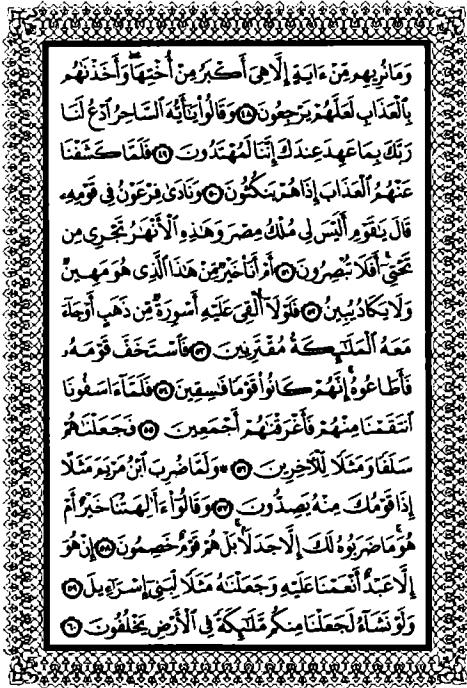 وَمَا نُرِيهِم مِّنْ ءَايَةٍ إِلَّا هِىَ أَكْبَرُ مِنْ أُخْتِهَا وَأَخَذْنَٰهُم
بِالْعَذَابِ لَعَلَّهُمْ يَرْجِعُونَ ٤٨ وَقَالُوا۟ يَٰٓأَيُّهَ السَّاحِرُ ادْعُ لَنَا
رَبَّكَ بِمَا عَهِدَ عِندَكَ إِنَّنَا لَمُهْتَدُونَ ٤٩ فَلَمَّا كَشَفْنَا
عَنْهُمُ الْعَذَابَ إِذَا هُمْ يَنكُثُونَ ٥٠ وَنَادَىٰ فِرْعَوْنُ فِى قَوْمِهِۦ
قَالَ يَٰقَوْمِ أَلَيْسَ لِى مُلْكُ مِصْرَ وَهَٰذِهِ الْأَنْهَٰرُ تَجْرِى مِن
تَحْتِىٓ أَفَلَا تُبْصِرُونَ ٥١ أَمْ أَنَا۠ خَيْرٌ مِّنْ هَٰذَا الَّذِى هُوَ مَهِينٌ
وَلَا يَكَادُ يُبِينُ ٥٢ فَلَوْلَآ أُلْقِىَ عَلَيْهِ أَسْوِرَةٌ مِّن ذَهَبٍ أَوْ جَآءَ
مَعَهُ الْمَلَٰٓئِكَةُ مُقْتَرِنِينَ ٥٣ فَاسْتَخَفَّ قَوْمَهُۥ
فَأَطَاعُوهُ إِنَّهُمْ كَانُوا۟ قَوْمًا فَٰسِقِينَ ٥٤ فَلَمَّآ ءَاسَفُونَا
انتَقَمْنَا مِنْهُمْ فَأَغْرَقْنَٰهُمْ أَجْمَعِينَ ٥٥ فَجَعَلْنَٰهُمْ
سَلَفًا وَمَثَلًا لِّلْءَاخِرِينَ ٥٦ * وَلَمَّا ضُرِبَ ابْنُ مَرْيَمَ مَثَلًا
إِذَا قَوْمُكَ مِنْهُ يَصِدُّونَ ٥٧ وَقَالُوٓا۟ ءَأَٰلِهَتُنَا خَيْرٌ أَمْ
هُوَ مَا ضَرَبُوهُ لَكَ إِلَّا جَدَلًۢا بَلْ هُمْ قَوْمٌ خَصِمُونَ ٥٨ إِنْ هُوَ
إِلَّا عَبْدٌ أَنْعَمْنَا عَلَيْهِ وَجَعَلْنَٰهُ مَثَلًا لِّبَنِىٓ إِسْرَٰٓءِيلَ ٥٩
وَلَوْ نَشَآءُ لَجَعَلْنَا مِنكُم مَّلَٰٓئِكَةً فِى الْأَرْضِ يَخْلُفُونَ ٦٠